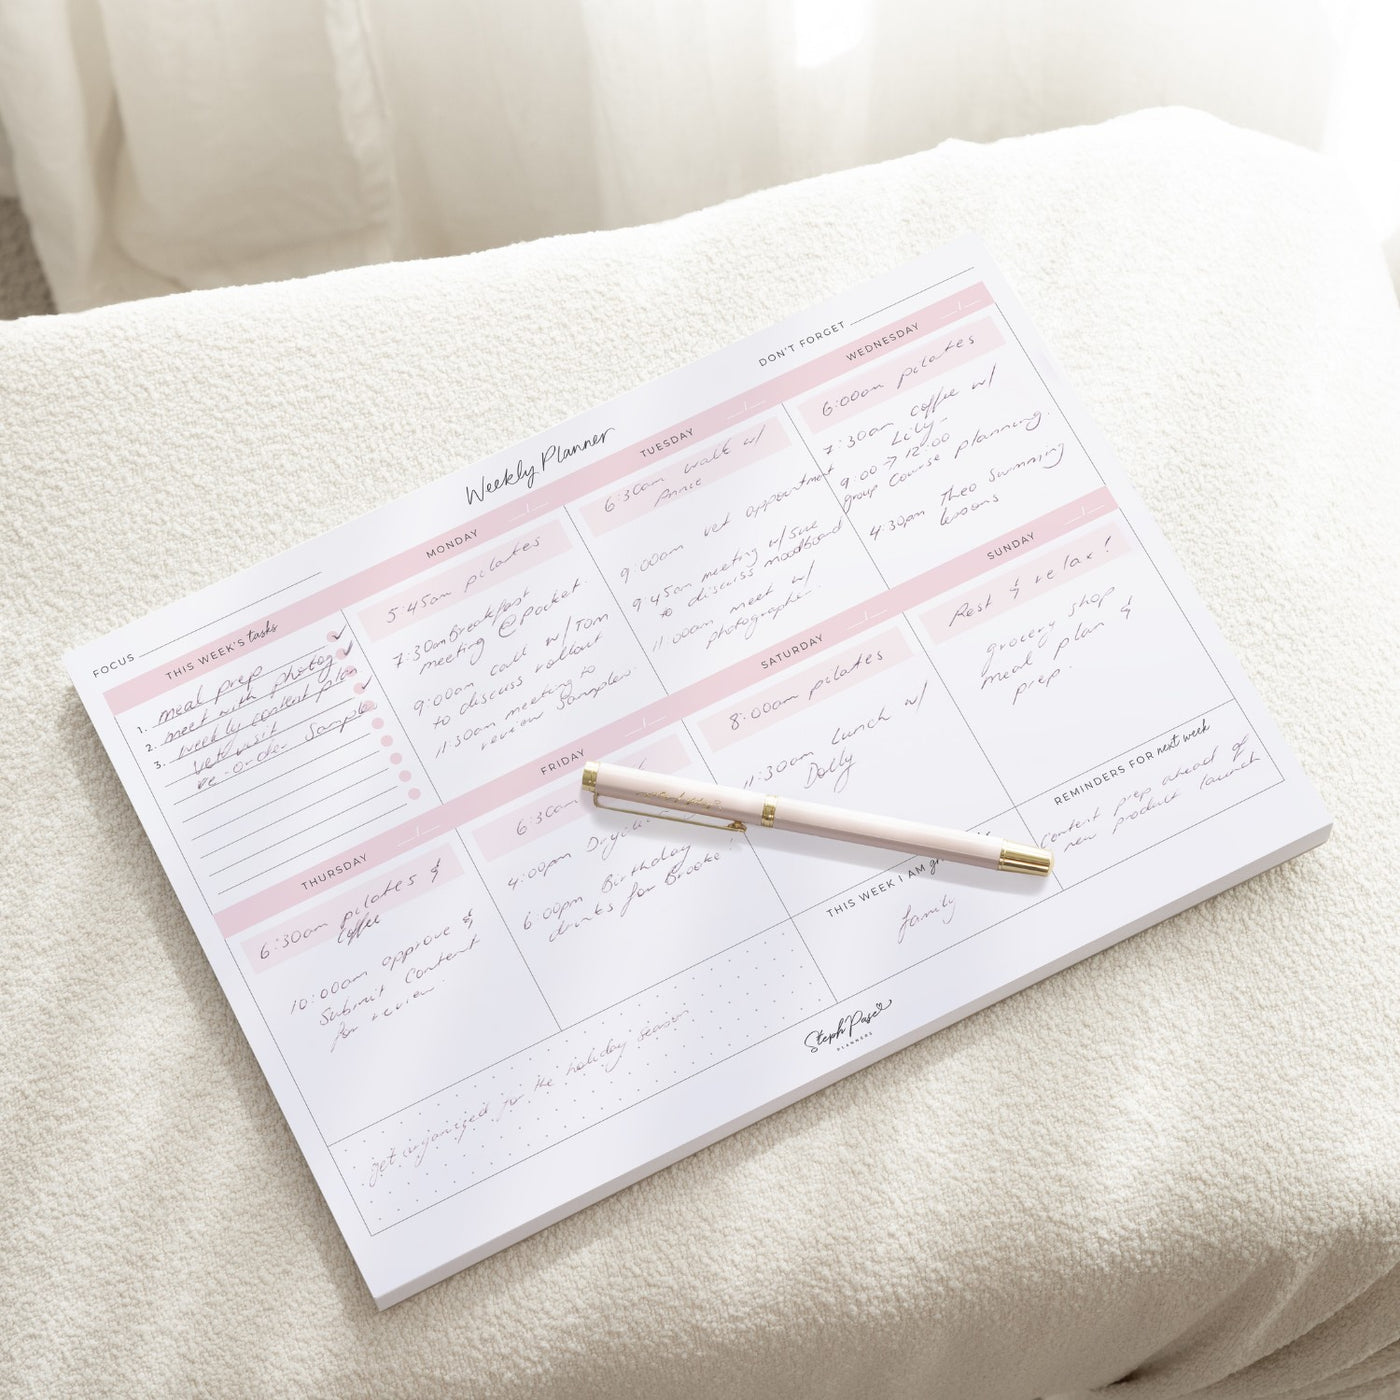 Weekly Planner
DON'T FORGET
FOCUS
THIS WEEK'S tasks
1. meal prep
2. meet with photog
3. weekly content plan
vet visit
re-order samples
MONDAY
5:45am pilates
7:30am Breakfast
meeting @ packet.
9:00am call w/ Tom
to discuss rollout
11:30am meeting to
review samples.
TUESDAY
6:30am walk w/
Annie
9:00am vet appointment
9:45am meeting w/ Sue
to discuss moodboard
11:00am meet w/
photographer.
WEDNESDAY
6:00am pilates
7:30am coffee w/
Lily
9:00 → 12:00
group course planning.
4:30pm Theo Swimming
lessons
THURSDAY
6:30am pilates &
coffee
10:00am approve &
submit content
for review.
FRIDAY
6:30am
4:00pm
6:00pm Birthday
drinks for Brooke!
SATURDAY
8:00am pilates
11:30am Lunch w/
Dolly
SUNDAY
Rest & relax!
grocery shop
meal plan &
prep.
THIS WEEK I AM
family
REMINDERS FOR next week
Content prep ahead of
new product launch
get organized for the holiday season
Steph Pase
PLANNERS